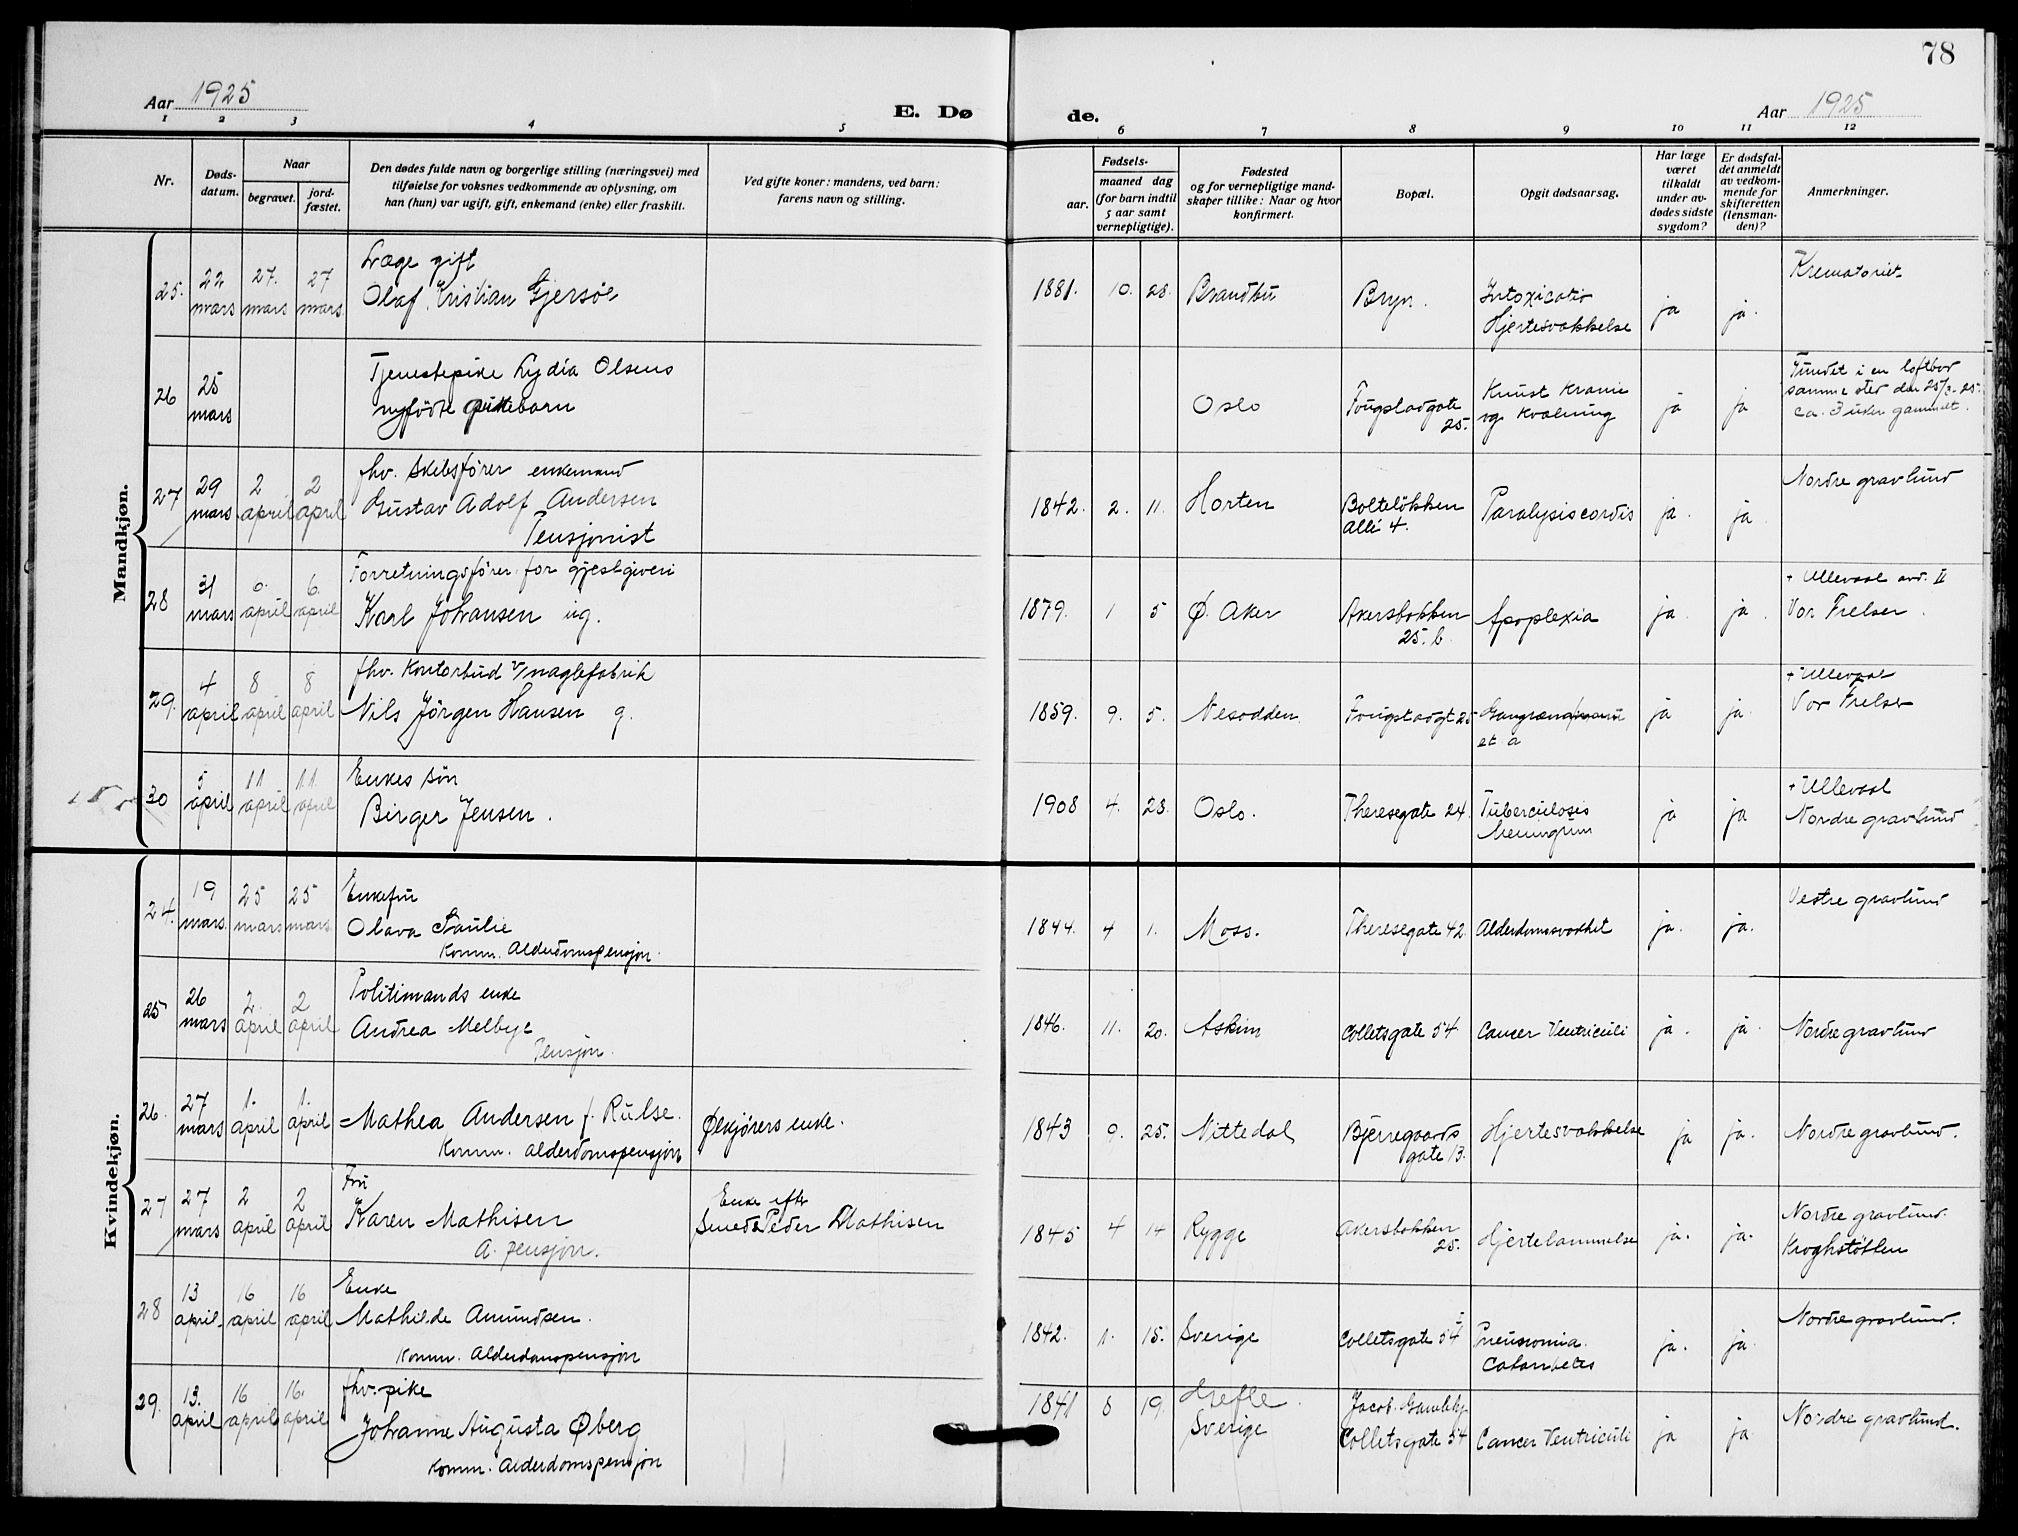 78
Aar 1925
E. Dø
de.
Aar 1925
1 2 3 4 5 6 7 8 9 10 11 12
Nr.
Døds-
datum.
Naar
begravet.
jord-
fæstet.
Den dødes fulde navn og borgerlige stilling (næringsvei) med
tilføielse for voksnes vedkommende av oplysning, om
han (hun) var ugift, gift, enkemand (enke) eller fraskilt.
Ved gifte koner: mandens, ved barn:
farens navn og stilling.
Fødsels-
aar.
maaned dag
(for barn indtil
5 aar samt
vernepligtige).
Fødested
og for vernepligtige mand-
skaper tillike: Naar og hvor
konfirmert.
Bopæl.
Opgit dødsaarsag.
Har læge
været
tilkaldt
under av-
dødes sidste
sygdom?
Er dødsfal-
det anmeldt
av vedkom-
mende for
skifteretten
(lensman-
den)?
Anmerkninger.
Mandkjøn.
25. 22 mars 27. mars 27 mars
Læge gift
Olaf Kristian Gjersøe
1881. 10. 28. Brandbu Bryn.
Intoxicatio
Hjertesvakkelse
ja ja.
Krematoriet
26 25 mars
Tjenestepike Lydia Olsens
nyfødte pikebarn
Oslo
Fougstadgate
25.
Knust kranie
og kvælning
ja ja
Fundet i en loftbod
samme sted den 25/3-25.
ca. 3 uker gammelt.
27 29 mars 2 april 2 april
fhv. skibsfører enkemand
Gustav Adolf Andersen
Pensjonist
1842. 2. 11. Horten
Bolteløkken
allé 4.
Paralysis cordis ja. ja.
Nordre gravlund
28 31 mars 6. april 6. april
Forretningsfører for gjestgiveri
Karl Johansen ug.
1879. 1 5 Ø. Aker
Akersbakken
25. b.
Apoplexia ja. ja.
+ Ullevaal avd. II
Vor Frelser.
29. 4 april 8 april 8 april
fhv. Kontorbud v/ naglefabrik
Nils Jørgen Hansen g.
1859. 9. 5. Nesodden. Fougstadgt 25
et. a
ja ja.
+ Ullevaal
Vor Frelser
30 5 april 11 april 11 april
Enkes søn
Birger Jensen.
1908 4. 23. Oslo. Theresegate 24.
Tuberculosis
ja ja
+ Ullevaal
Nordre gravlund
Kvindekjøn.
24. 19 mars. 25 mars 25 mars.
Enkefru
Olava Paulie
Komm. Alderdomspensjon.
1844. 4 1. Moss. Theresegate 42. Alderdomssvakhet ja. ja.
Vestre gravlund
25 26 mars 2 april 2 april
Politimands enke
Andrea Melbye
Pensjon.
1846. 11. 20. Askim Colletsgate 54. Cancer Ventriculi ja. ja.
Nordre gravlund
26. 27 mars 1. april 1. april
Mathea Andersen f. Rulse.
Komm. Alderdomspensjon
Ølkjørers enke.
1843 9. 25. Nittedal
Bjerregaards
gate 13.
Hjertesvakkelse ja ja.
Nordre gravlund.
27 27 mars 2 april 2 april
Fru
Karen Mathisen
A. pensjon.
Enke efter
Smed Peder Mathisen
1845 4 14 Rygge
Akersbakken
25.
Hjertelammelse ja. ja.
Nordre gravlund.
Kroghstøtten
28 13 april. 16 april 16 april
Enke
Mathilde Amundsen.
Komm. Alderdomspensjon
1842. 1. 15. Sverige Colletsgate 54
Pneumonia
ja. ja.
Nordre gravlund.
29. 13. april 16 april 16. april
fhv. pike
Johanne Augusta Øberg
Komm. Alderdomspensjon
1841 8 19. Gefle.
Sverige
Colletsgate 54 Cancer Ventriculi ja ja
Nordre gravlund.